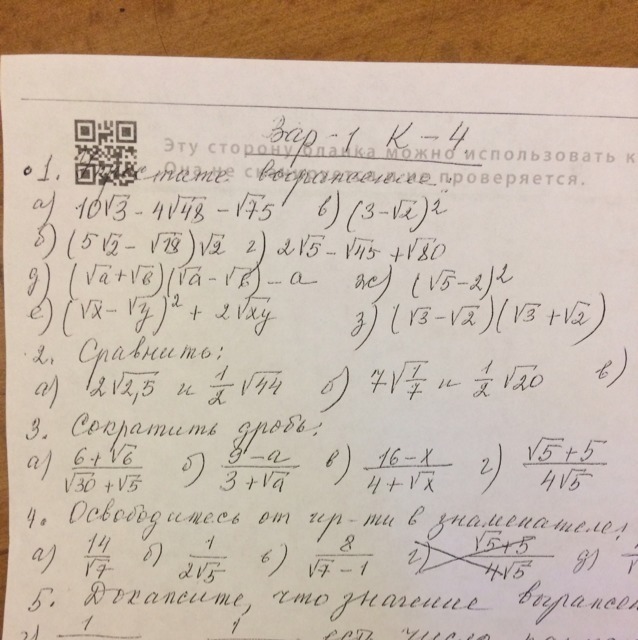 Вар-1 К-4.
Эту сторону бланка можно использовать к
не проверяется.
1. Упростите выражение:
а) 10√3 - 4√48 - √75 в) (3-√2)²
б) (5√2 - √18)√2 г) 2√5 - √45 + √80
д) (√а+√в)(√а-√в) - а ж) (√5-2)²
е) (√х-√у)² + 2√ху з) (√3-√2)(√3+√2)
2. Сравнить:
а) 2√2,5 и 1/2 √44 б) 7√1/7 и 1/2 √20 в)
3. Сократить дробь:
а) (6+√6)/(√30+√5) б) (9-а)/(3+√а) в) (16-х)/(4+√х) г) (√5+5)/(4√5)
4. Освободитесь от ир-ти в знаменателе:
а) 14/√7 б) 1/(2√5) в) 8/(√7-1) г) (√5+5)/(4√5) д)
5. Докажите, что значение выражен
1 1 есть число